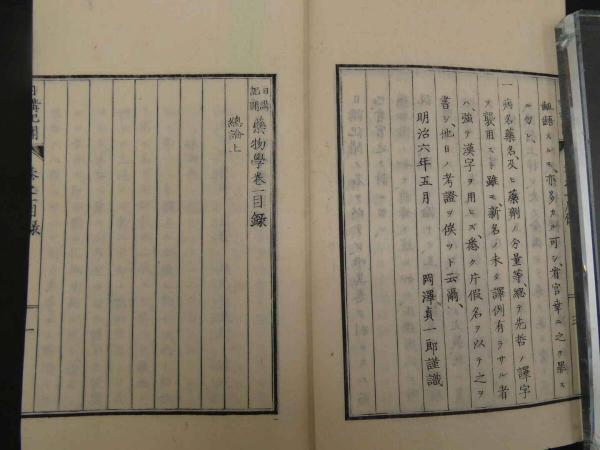 齟齬スルモノ亦多カル可シ、看官幸ニ之ヲ恕セ
ヨ
一病名藥名、及ヒ藥劑ノ分量等、總テ先哲ノ譯字
ヲ襲用スト雖モ、新名ノ未タ譯例有ラサル者
ハ、強テ漢字ヲ用ヒズ、悉ク片假名ヲ以テ之ヲ
書シ、他日ノ考證ヲ俟ツト云爾、
明治六年五月 岡澤貞一郎謹識
日講記聞 藥物學卷一目録
總論上
日講記聞 目録 一